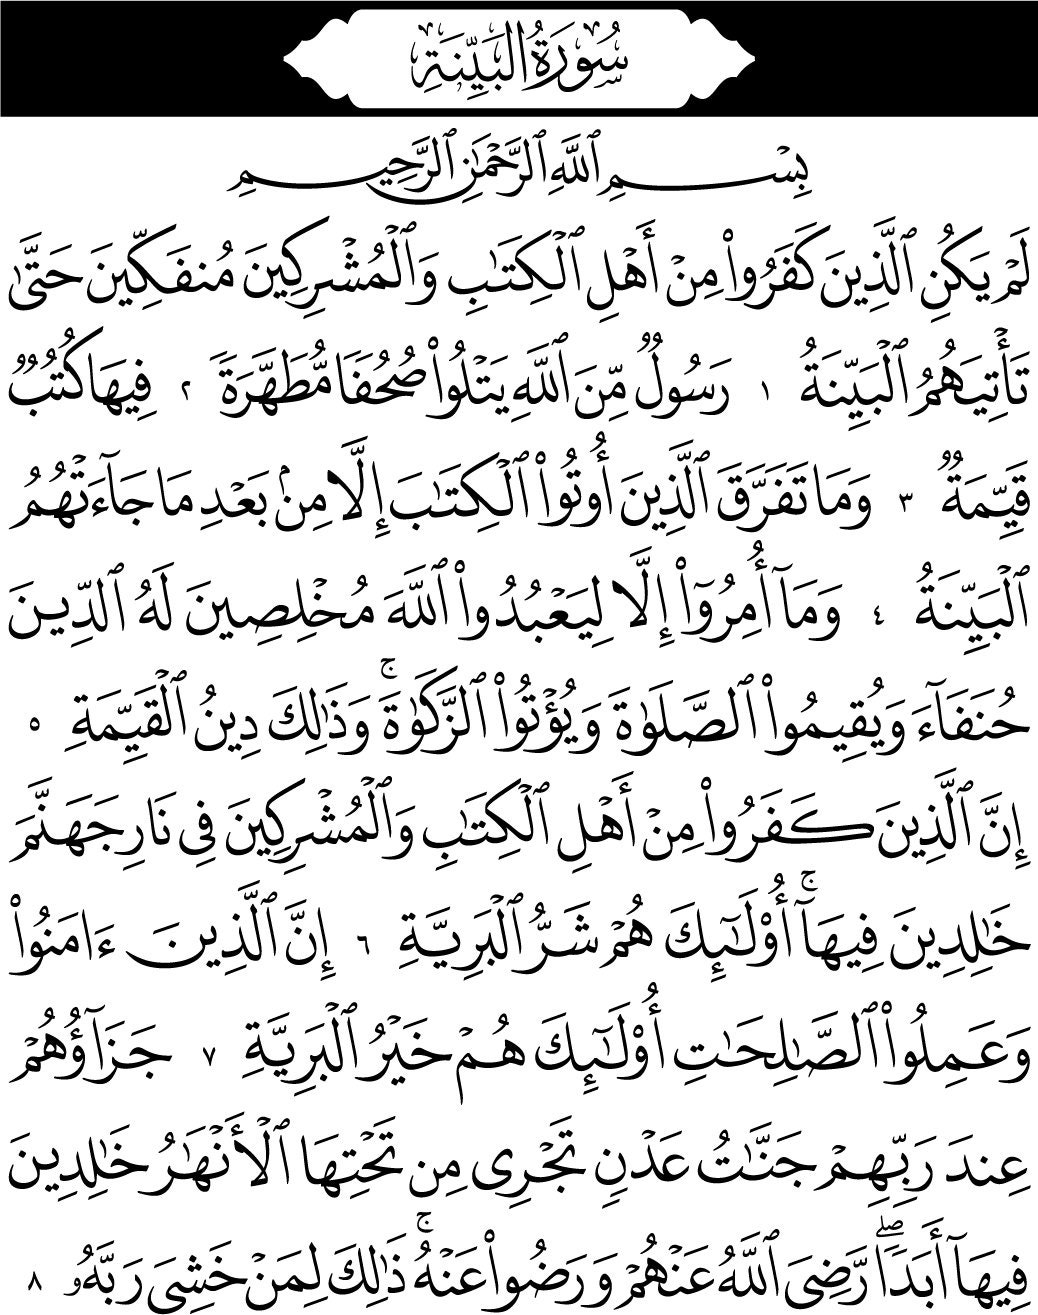 سُورَةُ البَيِّنَةِ
بِسْمِ ٱللَّهِ ٱلرَّحْمَٰنِ ٱلرَّحِيمِ
لَمْ يَكُنِ ٱلَّذِينَ كَفَرُوا۟ مِنْ أَهْلِ ٱلْكِتَٰبِ وَٱلْمُشْرِكِينَ مُنفَكِّينَ حَتَّىٰ
تَأْتِيَهُمُ ٱلْبَيِّنَةُ ١ رَسُولٌ مِّنَ ٱللَّهِ يَتْلُوا۟ صُحُفًا مُّطَهَّرَةً ٢ فِيهَا كُتُبٌ
قَيِّمَةٌ ٣ وَمَا تَفَرَّقَ ٱلَّذِينَ أُوتُوا۟ ٱلْكِتَٰبَ إِلَّا مِنۢ بَعْدِ مَا جَآءَتْهُمُ
ٱلْبَيِّنَةُ ٤ وَمَآ أُمِرُوٓا۟ إِلَّا لِيَعْبُدُوا۟ ٱللَّهَ مُخْلِصِينَ لَهُ ٱلدِّينَ
حُنَفَآءَ وَيُقِيمُوا۟ ٱلصَّلَوٰةَ وَيُؤْتُوا۟ ٱلزَّكَوٰةَ ۚ وَذَٰلِكَ دِينُ ٱلْقَيِّمَةِ ٥
إِنَّ ٱلَّذِينَ كَفَرُوا۟ مِنْ أَهْلِ ٱلْكِتَٰبِ وَٱلْمُشْرِكِينَ فِى نَارِ جَهَنَّمَ
خَٰلِدِينَ فِيهَآ ۚ أُو۟لَٰٓئِكَ هُمْ شَرُّ ٱلْبَرِيَّةِ ٦ إِنَّ ٱلَّذِينَ ءَامَنُوا۟
وَعَمِلُوا۟ ٱلصَّٰلِحَٰتِ أُو۟لَٰٓئِكَ هُمْ خَيْرُ ٱلْبَرِيَّةِ ٧ جَزَآؤُهُمْ
عِندَ رَبِّهِمْ جَنَّٰتُ عَدْنٍ تَجْرِى مِن تَحْتِهَا ٱلْأَنْهَٰرُ خَٰلِدِينَ
فِيهَآ أَبَدًا ۖ رَّضِىَ ٱللَّهُ عَنْهُمْ وَرَضُوا۟ عَنْهُ ۚ ذَٰلِكَ لِمَنْ خَشِىَ رَبَّهُۥ ٨